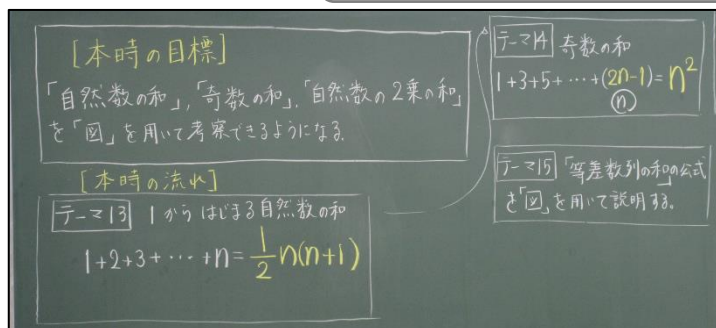 [本時の目標]
「自然数の和」,「奇数の和」,「自然数の2乗の和」
を「図」を用いて考察できるようになる.
[本時の流れ]
テーマ13 1からはじまる自然数の和
1+2+3+⋯+n=1/2 n(n+1)
テーマ14 奇数の和
1+3+5+⋯+(2n-1)=n²
n
テーマ15 「等差数列の和」の公式
を「図」を用いて説明する。